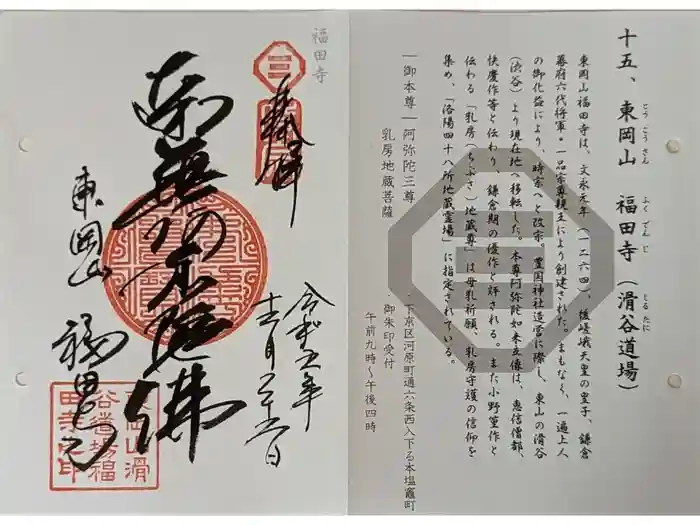 十五、東岡山 福田寺（滑谷道場）
とうこうさん ふくでんじ しるたに
東岡山福田寺は、文永元年（一二六四）、後嵯峨天皇の皇子、鎌倉
幕府六代将軍・一品宗尊親王により創建された。まもなく、一遍上人
の御化益により、時宗へと改宗。豊国神社造営に際し、東山の滑谷
（渋谷）より現在地へ移転した。本尊阿弥陀如来立像は、恵信僧都、
快慶作等と伝わり、鎌倉期の優作と評される。また小野篁作と
伝わる「乳房（ちぶさ）地蔵尊」は母乳祈願、乳房守護の信仰を
集め、「洛陽四十八所地蔵霊場」に指定されている。
―御本尊―阿弥陀三尊
乳房地蔵菩薩
・下京区河原町通六条西入下る本塩竈町
・御朱印受付
午前九時～午後四時
福田寺
三
奉拝
令和五年
十二月二十六日
南無阿弥陀佛
東岡山
福田寺
東岡山滑
谷道場福
田寺之印